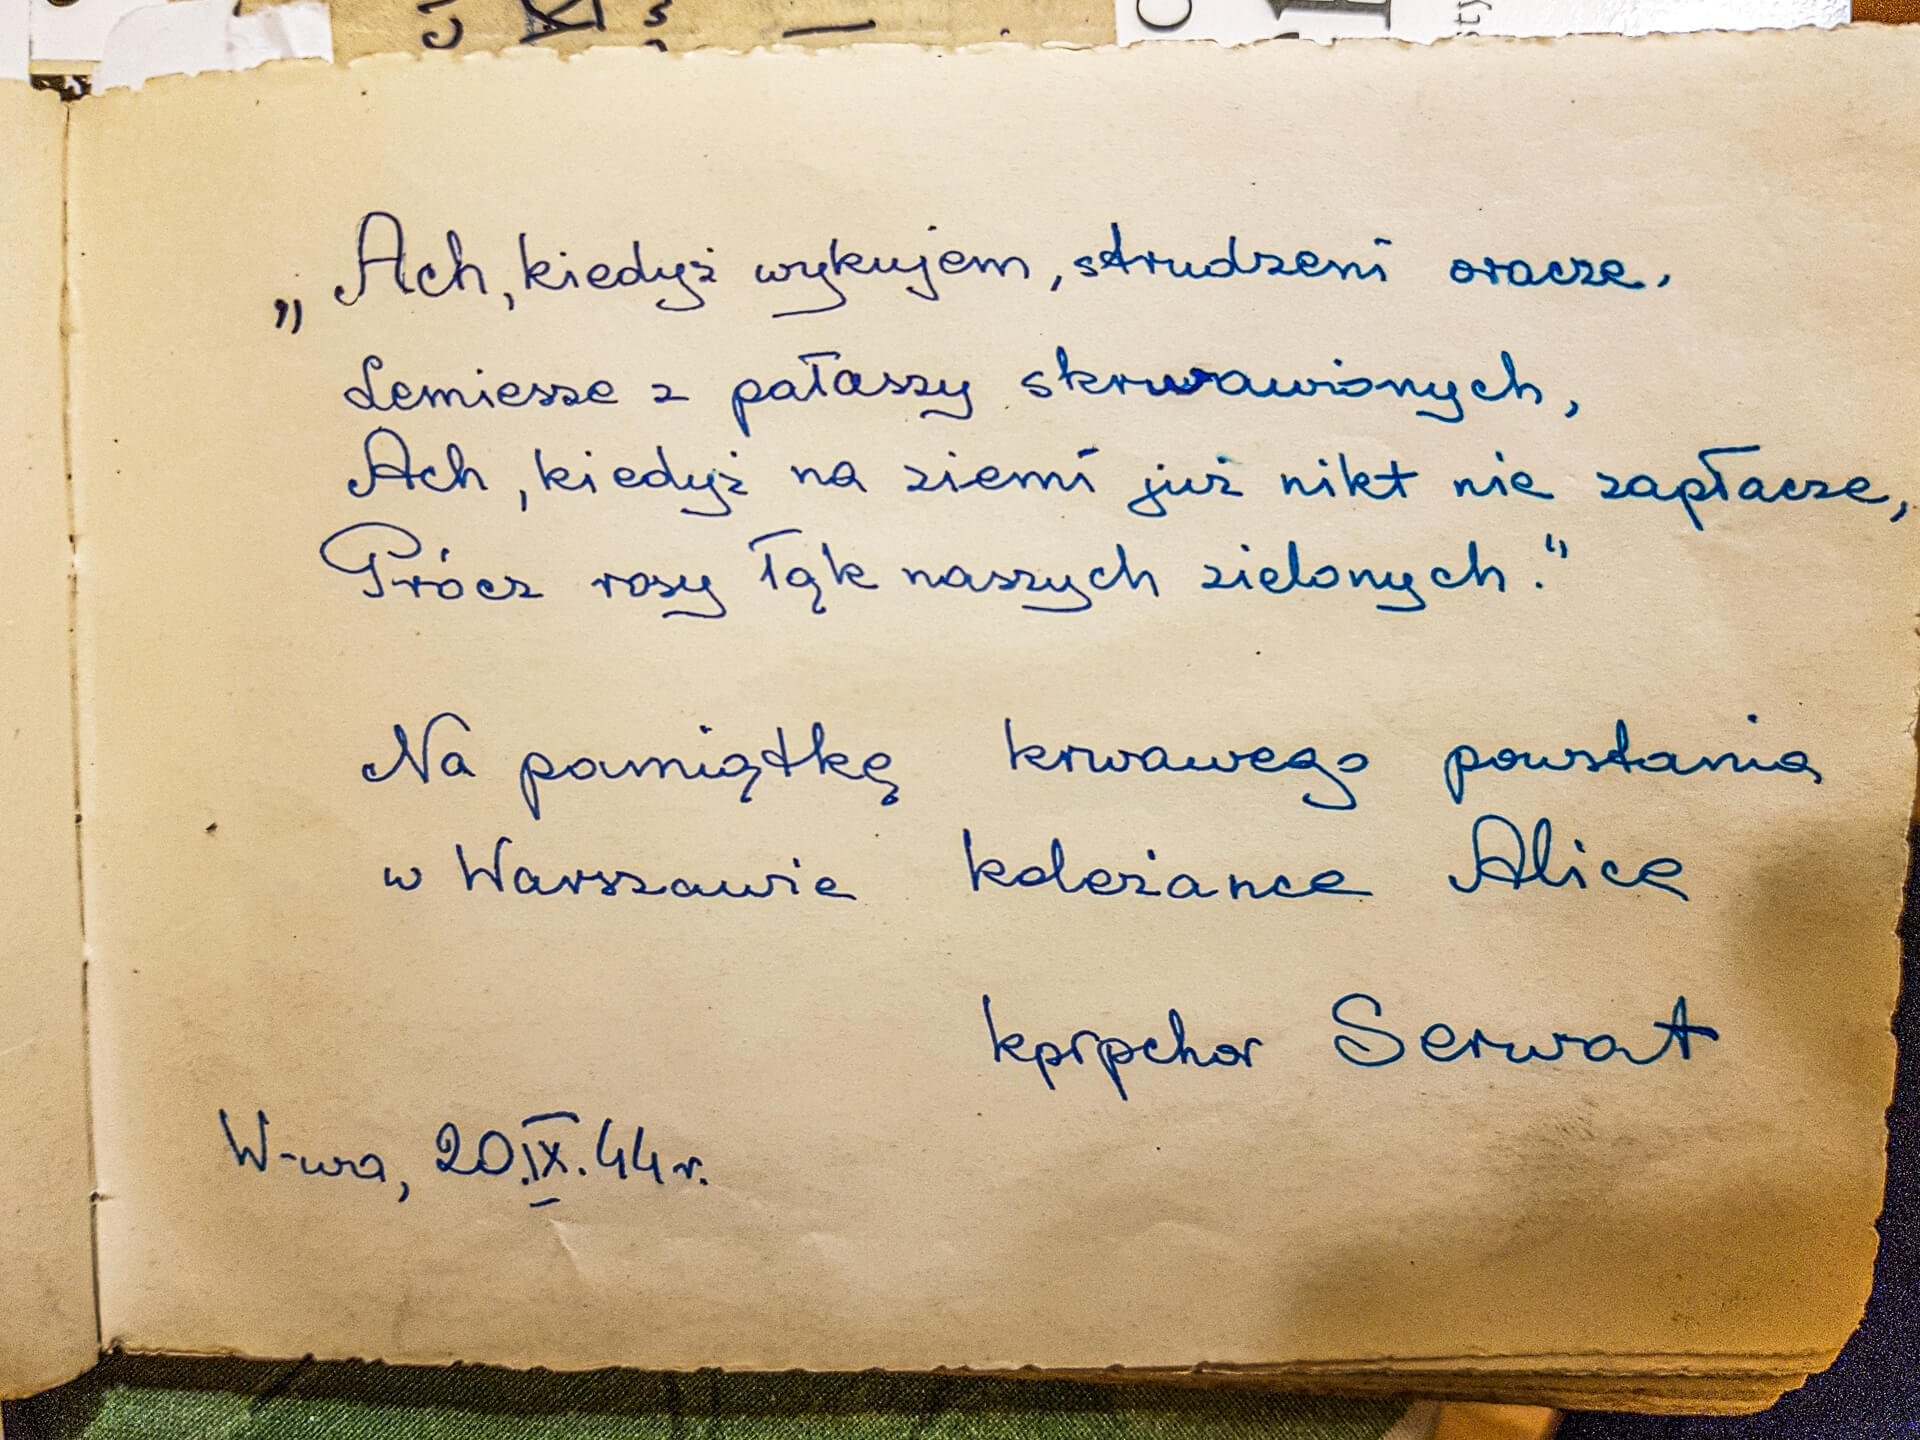 „Ach, kiedyż wykujem, strudzeni oracze,
Lemiesze z pałaszy skrwawionych,
Ach, kiedyż na ziemi już nikt nie zapłacze,
Prócz rosy łąk naszych zielonych."
Na pamiątkę krwawego powstania
w Warszawie koleżance Alice
kprpchor Serwat
W-wa, 20.IX.44r.